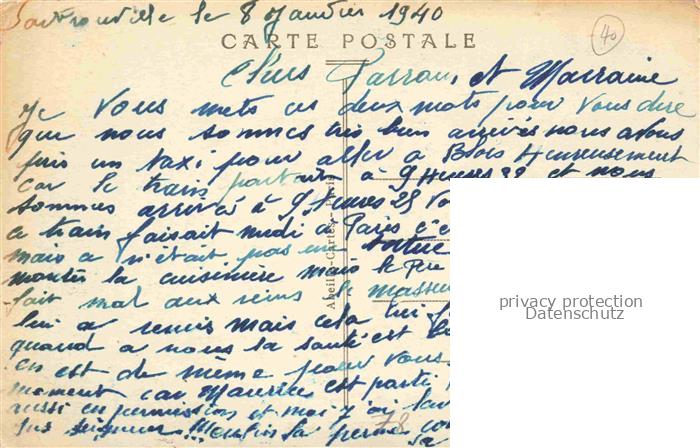 Sartrouville le 8 Janvier 1940
40
CARTE POSTALE
Chers Parrain, et Marraine
Je vous mets ces deux mots pour vous dire
que nous sommes très bien arrivés nous avons
pris un taxi pour aller a Blois Heureusement
car le train partait à 9 Heures 28 et nous
sommes arrivés à 9 Heures 25
ce train faisait midi a Paris
mais a n'était pas une
monter la cuisinière mais le Père
fait mal aux reins le masseur
lui a remis mais cela lui
quand a nous la santé est
en est de même pour vous
moment car Maurice est parti
aussi en permission et moi j'ai
enfin la perme
Abeille-Cartes
78
privacy protection
Datenschutz